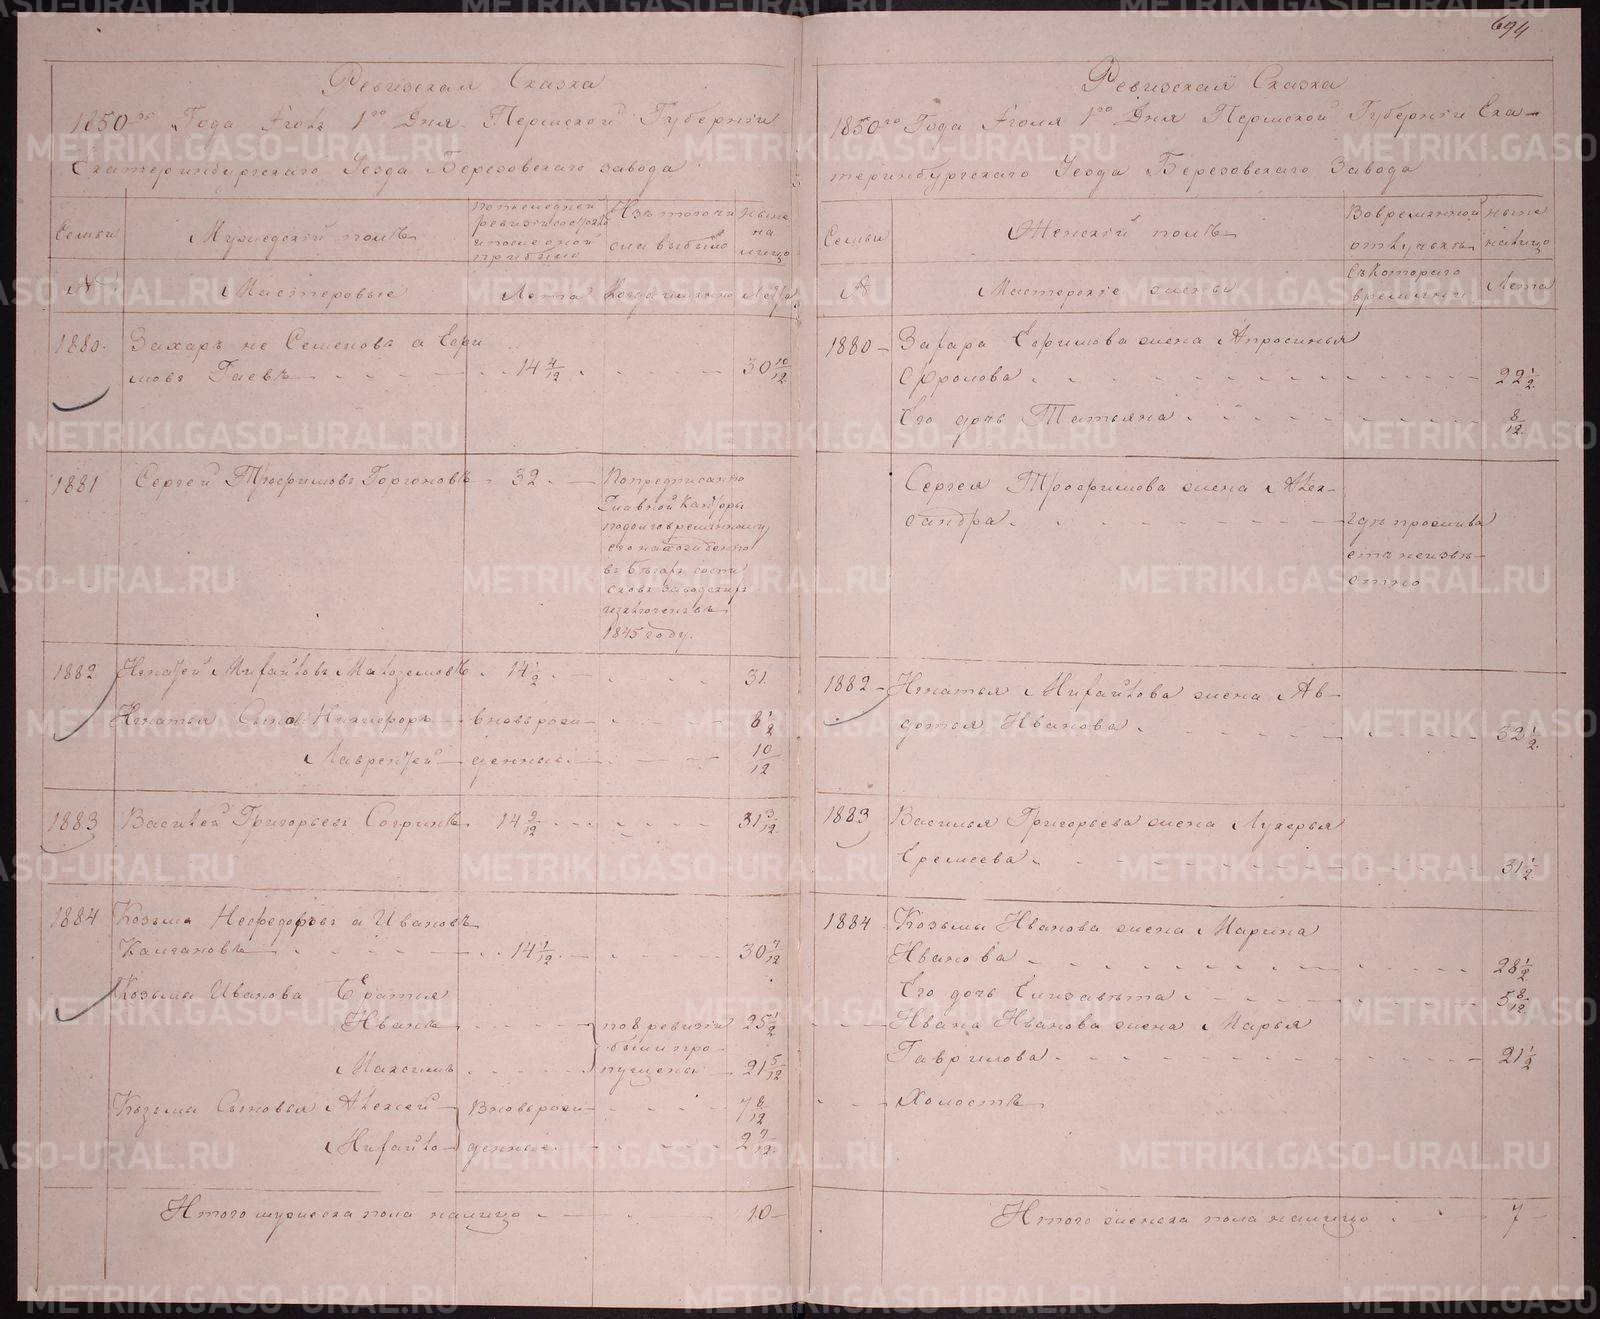 694
Ревизская Сказка
1850го Года Июля 1го Дня Пермской Губернiи
Екатеринбургскаго Уезда Березовскаго завода
Семьи
Мужеской полъ
По последней
ревизiи состояло
и после оной
прибыло
Изъ того чи
сла выбыло
Ныне
на
лицо
№
Мастеровые
Лета
Когда именно
Лета
1880
Захаръ не Семеновъ а Ефи
мовъ Гаевъ 14 4/12 30 10/12
1881 Сергей Трофимовъ Горгоновъ 32
По предписанiю
Главной Канторы
по долговременному
его нахожденiю
въ бегахъ
изъ
сковъ заводскихъ
изключенъ въ
1845 году.
1882 Игнатей Михайловъ Малоземовъ 14 1/2 31
Игнатья Сынъ Никифоръ вновь рож 8 1/2
Лаврентей денные 10/12
1883 Василей Григорьевъ Согринъ 14 9/12 31 3/12
1884 Козьма Нефедоровъ а Ивановъ
Калгановъ 14 1/12 30 7/12
Козьма Иванова Братья
Иванъ 25 1/2
по 8 ревизiи
были про
пущены
Максимъ 21 5/12
Козьмы Сыновья Алексей Вновь рож 7 8/12
Михайло денные 2 7/12
Итого мужеска пола налицо 10
Ревизская Сказка
1850го Года Июля 1го Дня Пермской Губернiи Ека-
теринбургскаго Уезда Березовскаго Завода
Семьи
Женскiй полъ
Во временной
отлучкъ
Ныне
налицо
№
Мастерскiе жены
Съ котораго
времени
Лета
1880 Захара Ефимова жена Апросинья
Фролова 22 1/2
Его дочь Татьяна 8/12
Сергея Трофимова жена Алек-
сандра
где прожива
етъ неизве-
стно
1882 Игнатья Михайлова жена Ав-
дотья Иванова 32 1/2
1883 Василья Григорьева жена Лукерья
Еремеева 31 1/2
1884 Козьмы Иванова жена Марина
Иванова 28 1/2
Его дочь Елизавета 5 8/12
Ивана Иванова жена Марья
Гаврилова 21 1/2
Холостъ
Итого женска пола налицо 7
METRIKI.GASO-URAL.RU